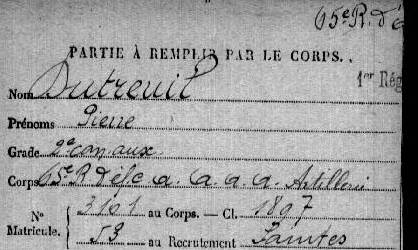 65e R. d'é
PARTIE À REMPLIR PAR LE CORPS.
1er Rég
Nom Dutreuil
Prénoms Pierre
Grade 2e can aux
Corps 65e R d'é/c a. a. a. a Artillerie
No 3161 au Corps. — Cl. 1897
Matricule. 52 au Recrutement Saintes